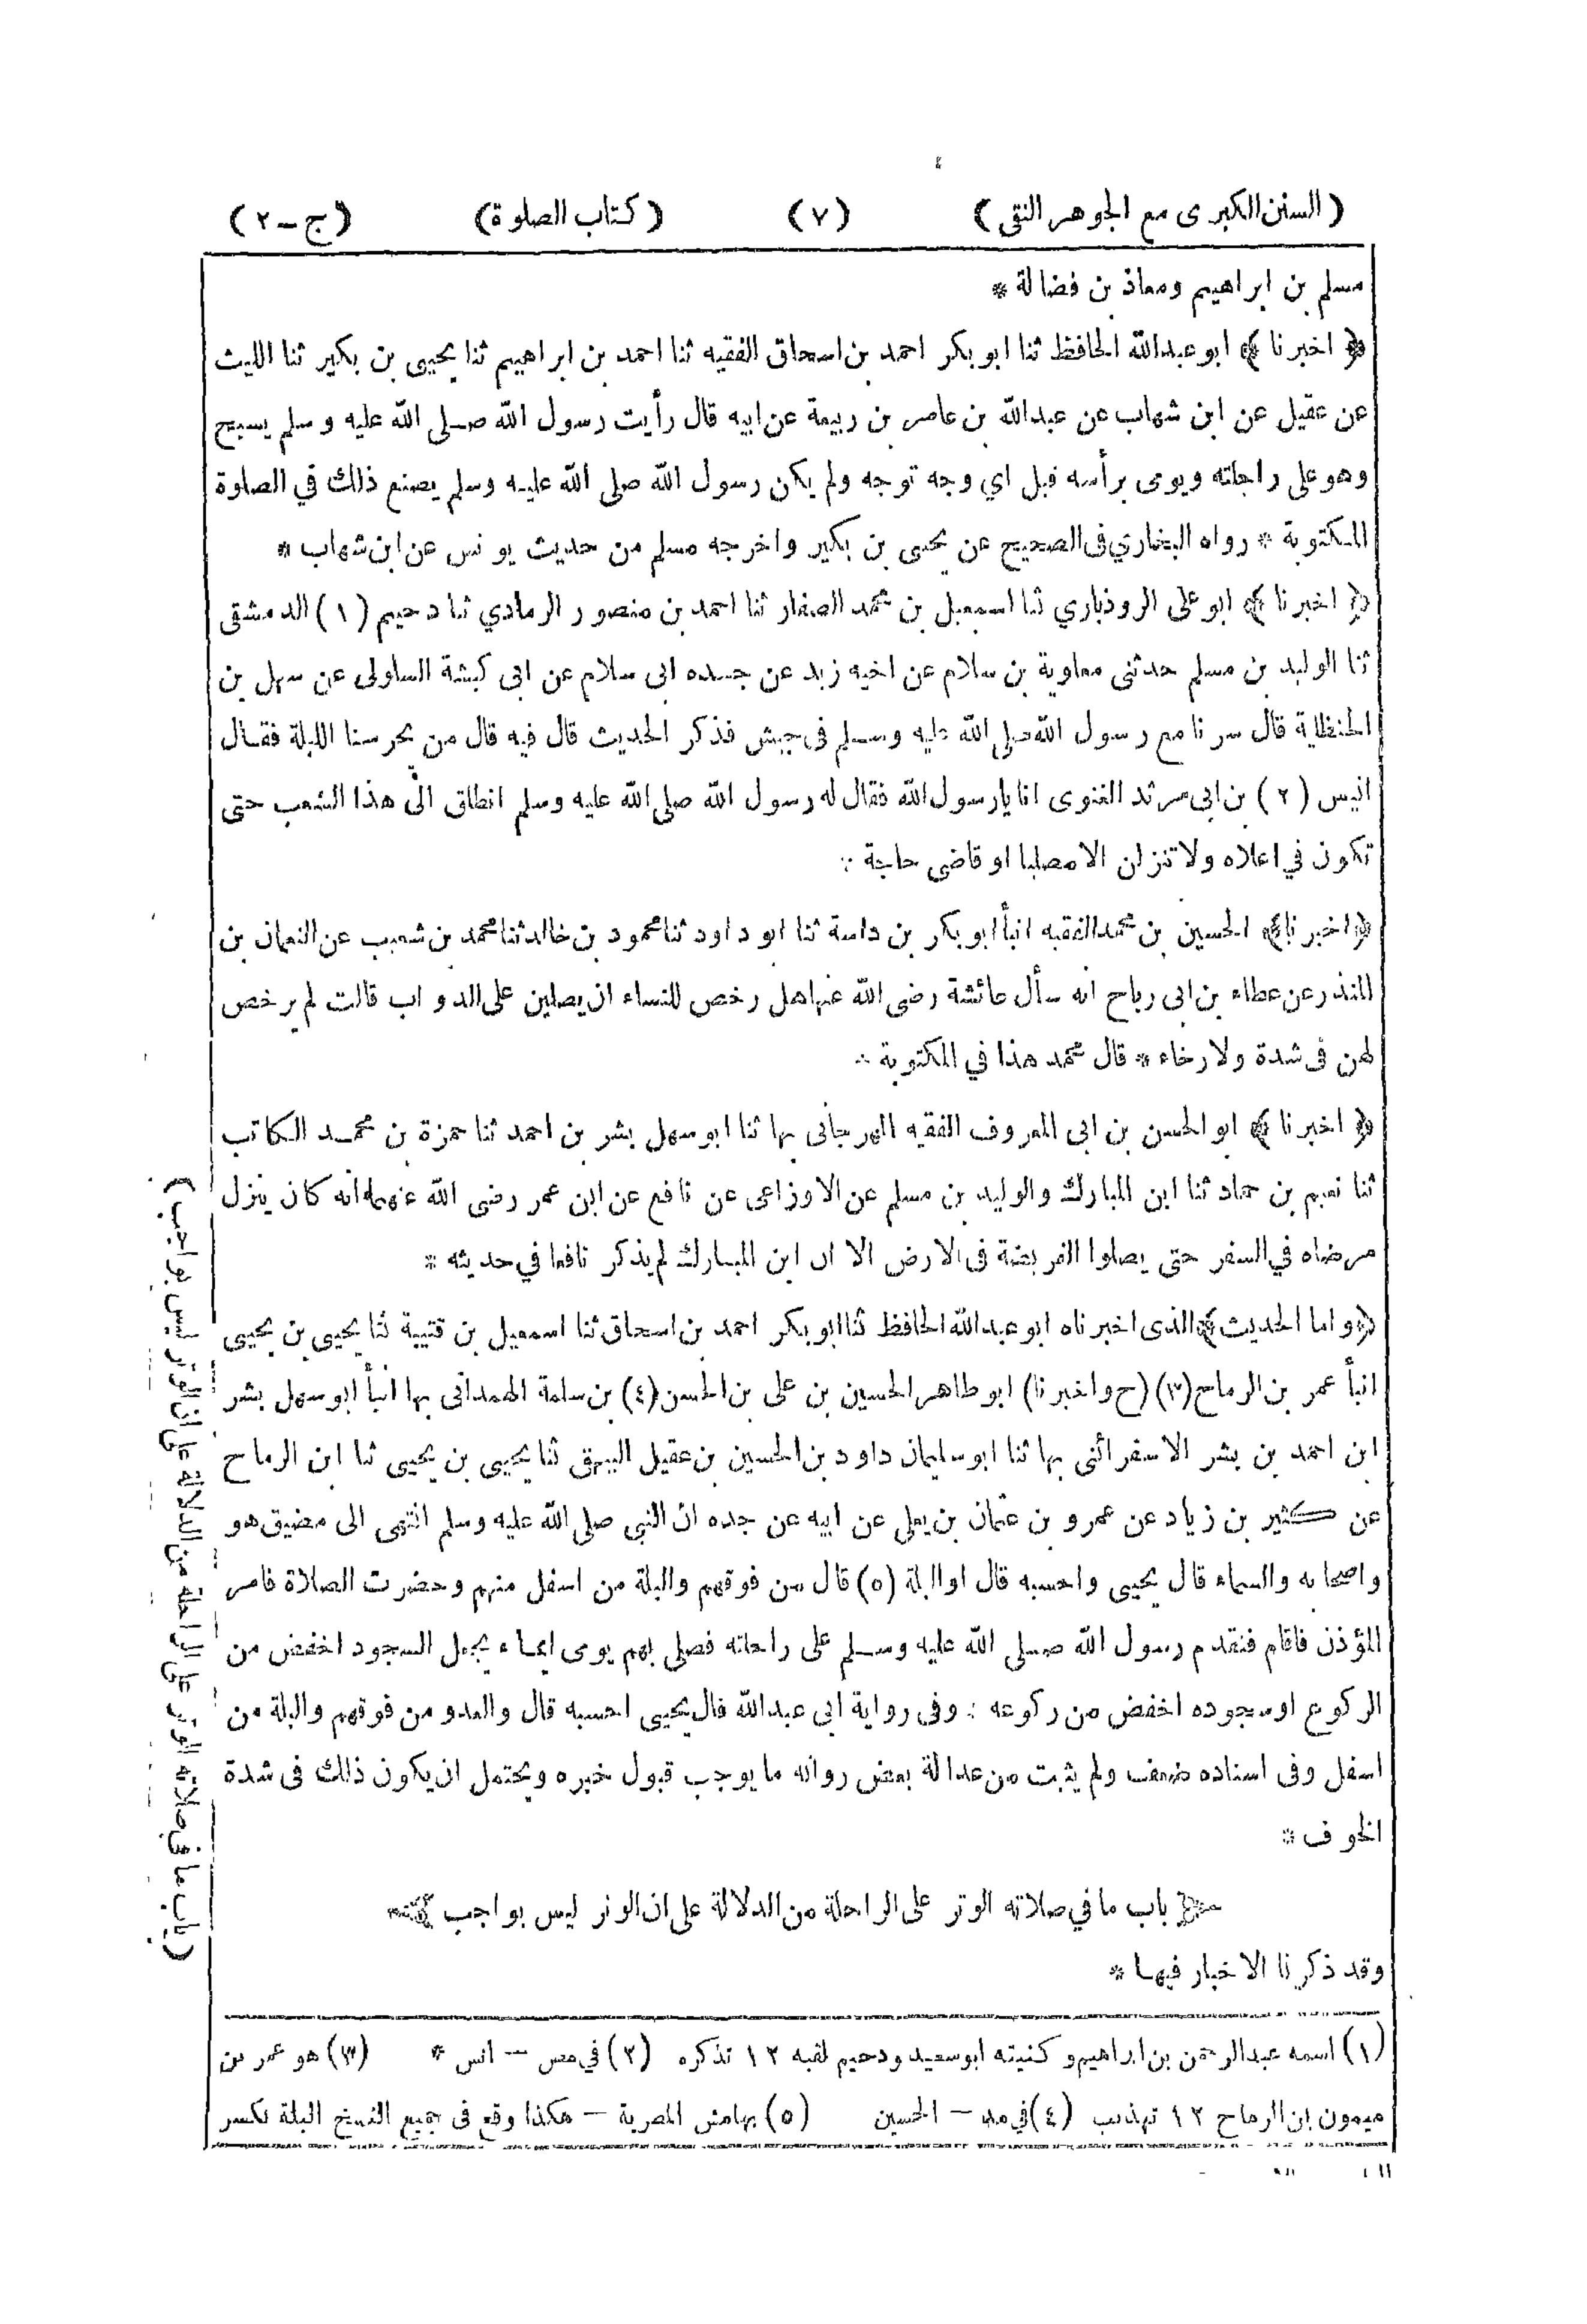 (السنن الكبرى مع الجوهر النقى) (٧) (كتاب الصلوة) (ج-٢)
مسلم بن ابراهيم ومعاذ بن فضالة *
﴿ اخبرنا ﴾ ابو عبدالله الحافظ ثنا ابو بكر احمد بن اسحاق الفقيه ثنا احمد بن ابراهيم ثنا يحيى بن بكير ثنا الليث
عن عقيل عن ابن شهاب عن عبدالله بن عامر بن ربيعة عن ابيه قال رأيت رسول الله صلى الله عليه وسلم يسبح
وهو على راحلته ويومى برأسه قبل اي وجه توجه ولم يكن رسول الله صلى الله عليه وسلم يصنع ذلك في الصلوة
المكتوبة * رواه البخاري فى الصحيح عن يحيى بن بكير واخرجه مسلم من حديث يونس عن ابن شهاب *
﴿ اخبرنا ﴾ ابو على الروذباري ثنا اسمعيل بن محمد الصفار ثنا احمد بن منصور الرمادي ثنا دحيم (١) الدمشقى
ثنا الوليد بن مسلم حدثنى معاوية بن سلام عن اخيه زيد عن جده ابى سلام عن ابى كبشة السلولى عن سهل بن
الحنظلية قال سرنا مع رسول الله صلى الله عليه وسلم فى جيش فذكر الحديث قال فيه قال من يحرسنا الليلة فقال
انيس (٢) بن ابى مرثد الغنوى انا يارسول الله فقال له رسول الله صلى الله عليه وسلم انطلق الى هذا الشعب حتى
تكون في اعلاه ولا تنزلن الا مصليا او قاضى حاجة *
﴿اخبرنا﴾ الحسين بن محمد الفقيه انبأ ابو بكر بن داسة ثنا ابو داود ثنا محمود بن خالد ثنا محمد بن شعيب عن النعمان بن
المنذر عن عطاء بن ابى رباح انه سأل عائشة رضى الله عنها هل رخص للنساء ان يصلين على الدواب قالت لم يرخص
لهن فى شدة ولا رخاء * قال محمد هذا في المكتوبة *
﴿ اخبرنا ﴾ ابو الحسن بن ابى المعروف الفقيه المهرجانى بها ثنا ابو سهل بشر بن احمد ثنا حمزة بن محمد الكاتب
ثنا نعيم بن حماد ثنا ابن المبارك والوليد بن مسلم عن الاوزاعى عن نافع عن ابن عمر رضى الله عنهما انه كان ينزل
مرضاه في السفر حتى يصلوا الفريضة فى الارض الا ان ابن المبارك لم يذكر نافعا في حديثه *
﴿واما الحديث﴾ الذى اخبرناه ابو عبدالله الحافظ ثنا ابو بكر احمد بن اسحاق ثنا اسمعيل بن قتيبة ثنا يحيى بن يحيى
انبأ عمر بن الرماح (٣) (ح واخبرنا) ابو طاهر الحسين بن على بن الحسن (٤) بن سلمة الهمدانى بها انبأ ابو سهل بشر
ابن احمد بن بشر الاسفرائنى بها ثنا ابو سليمان داود بن الحسين بن عقيل البيهقى ثنا يحيى بن يحيى ثنا ابن الرماح
عن كثير بن زياد عن عمرو بن عثمان بن يعلى عن ابيه عن جده ان النبي صلى الله عليه وسلم انتهى الى مضيق هو
واصحابه والسماء قال يحيى واحسبه قال او البلة (٥) قال من فوقهم والبلة من اسفل منهم وحضرت الصلاة فامر
المؤذن فاقام فتقدم رسول الله صلى الله عليه وسلم على راحلته فصلى بهم يومى ايماء يجعل السجود اخفض من
الركوع او سجوده اخفض من ركوعه : وفى رواية ابى عبدالله قال يحيى احسبه قال والعدو من فوقهم والبلة من
اسفل وفى اسناده ضعف ولم يثبت من عدالة بعض رواته ما يوجب قبول خبره ويحتمل ان يكون ذلك فى شدة
الخوف *
باب ما في صلاته الوتر على الراحلة من الدلالة على ان الوتر ليس بواجب
وقد ذكرنا الاخبار فيها *
(١) اسمه عبدالرحمن بن ابراهيم وكنيته ابو سعيد ودحيم لقبه ١٢ تذكره (٢) في مص - انس * (٣) هو عمر بن
ميمون ابن الرماح ١٢ تهذيب (٤) في مد - الحسين (٥) بهامش المصرية - هكذا وقع فى جميع النسخ البلة بكسر
(باب ما في صلاته الوتر على الراحلة من الدلالة على ان الوتر ليس بواجب)